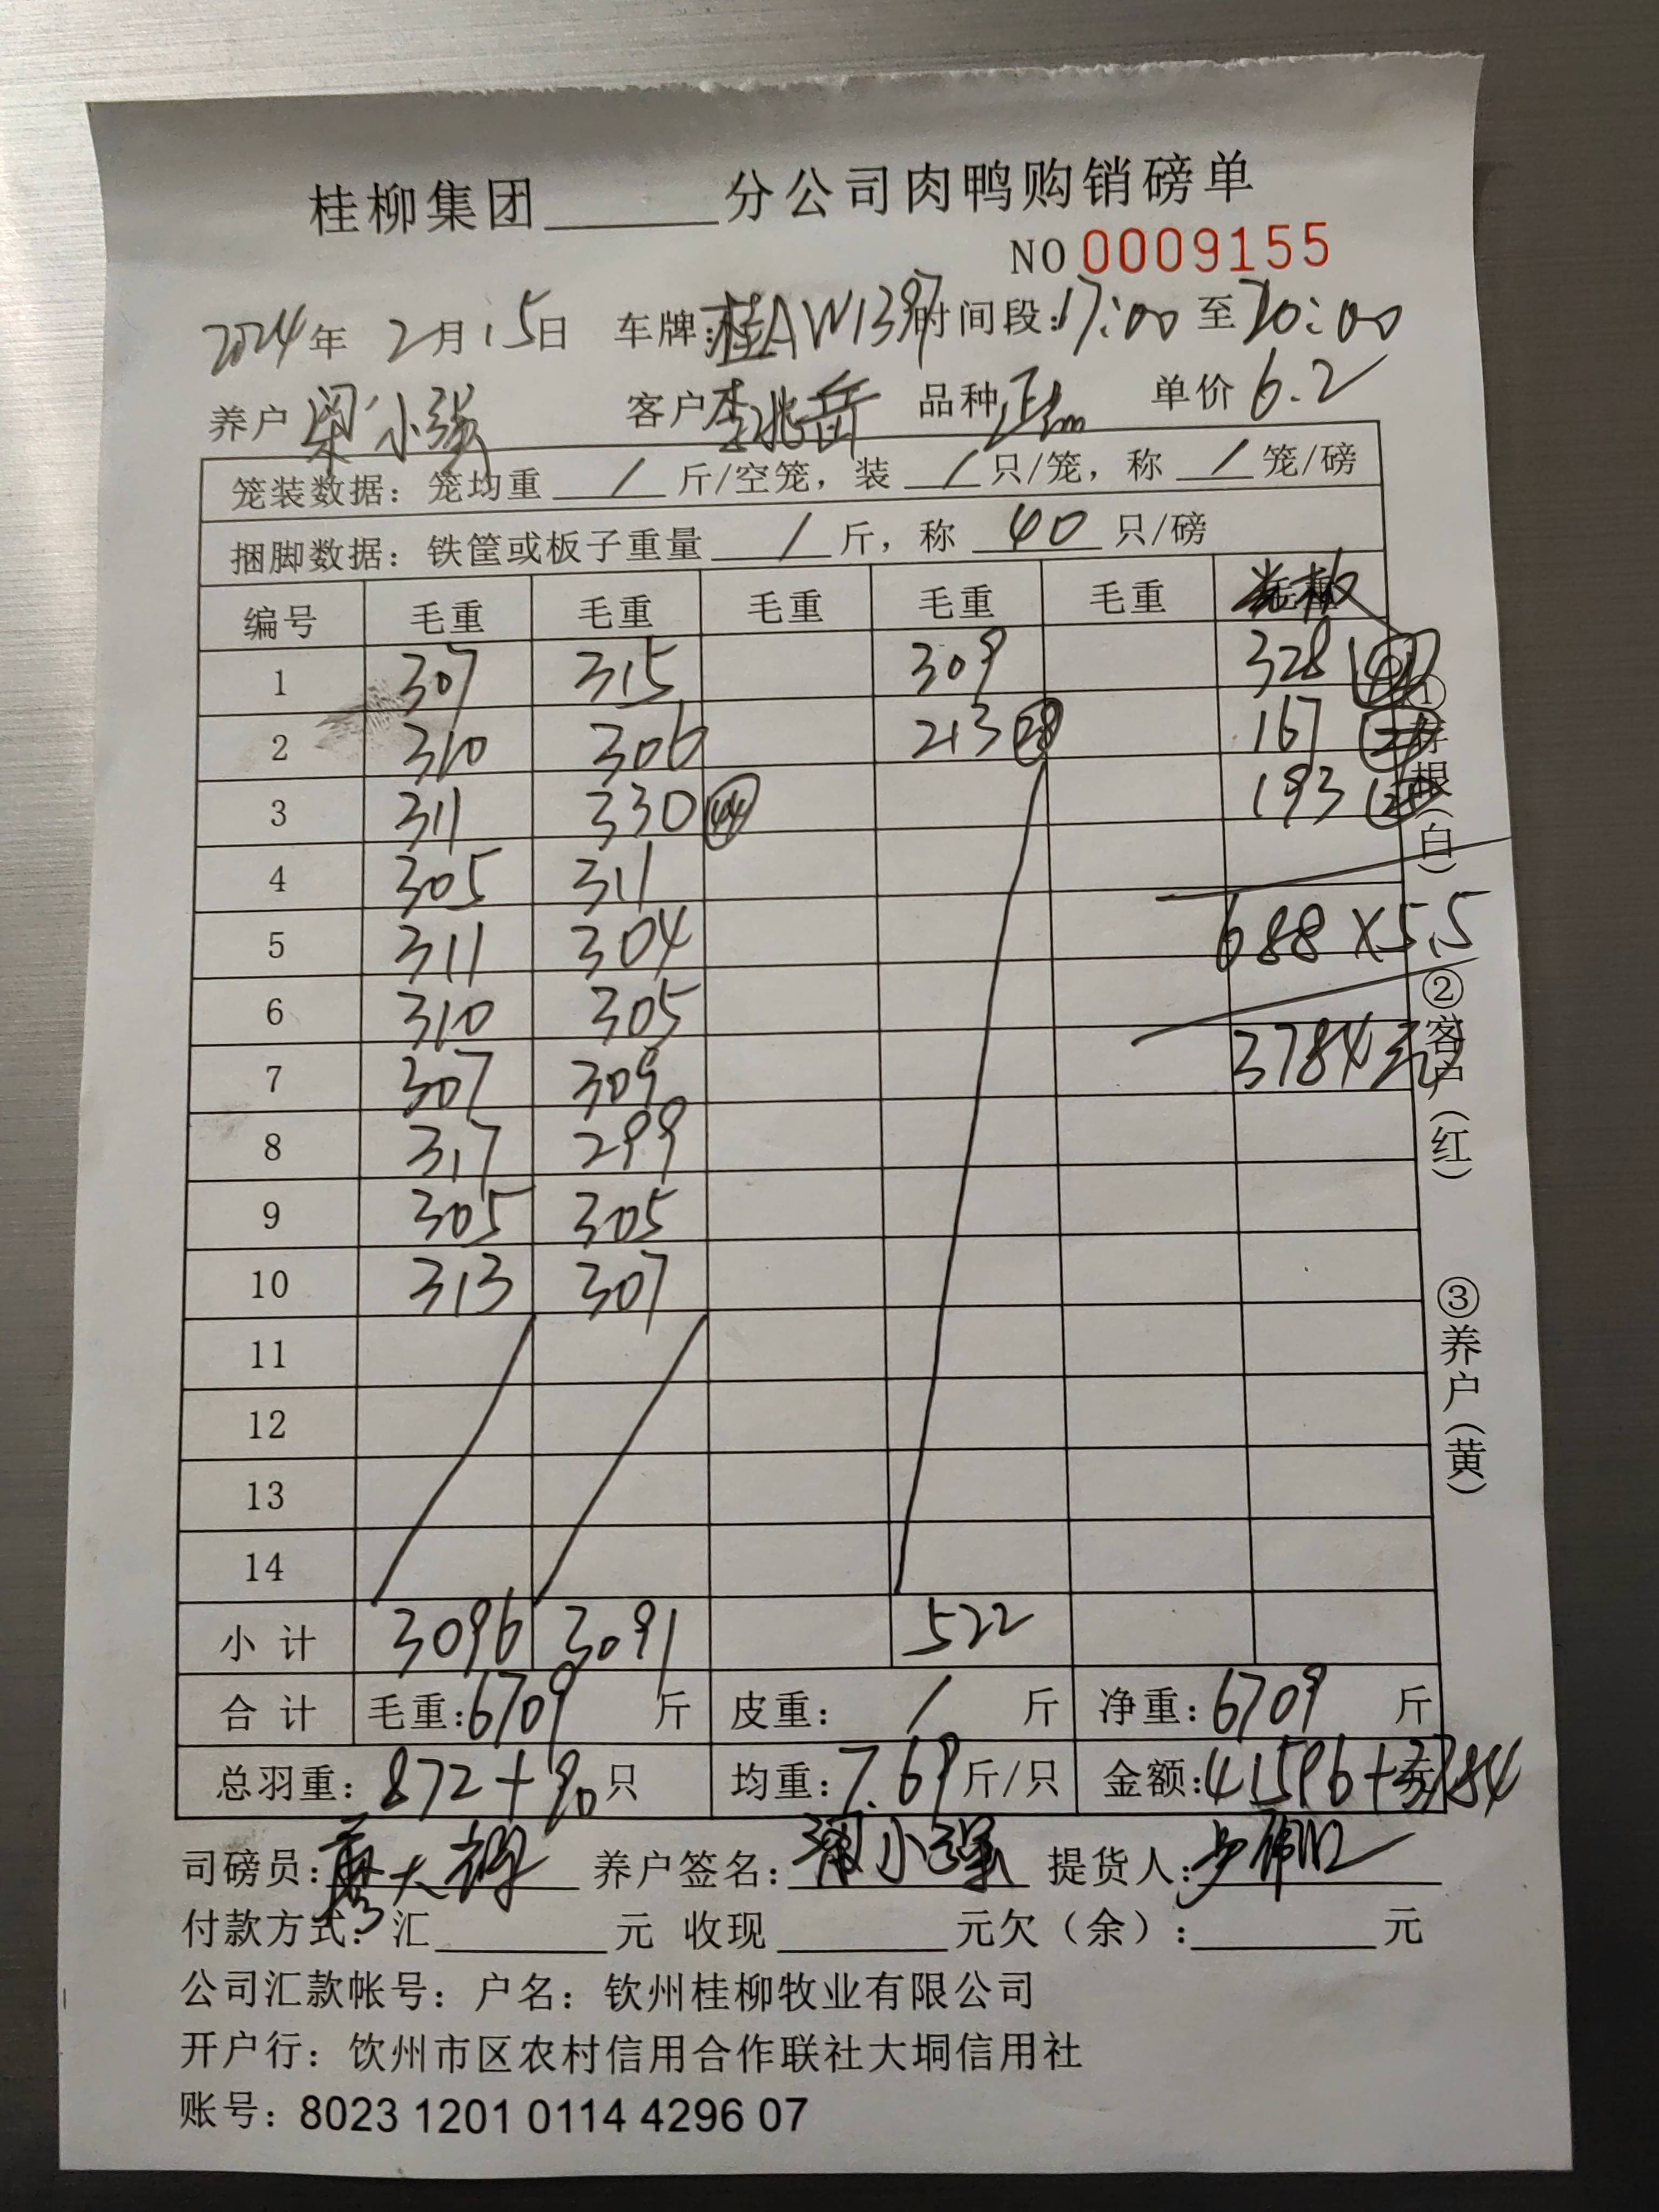 桂柳集团______分公司肉鸭购销磅单
NO 0009155
2024年 2月15日 车牌:桂AW1397 时间段:17:00 至 20:00
养户 梁小强 客户 李兆岳 品种 单价 6.2
笼装数据：笼均重 / 斤/空笼，装 / 只/笼，称 / 笼/磅
捆脚数据：铁筐或板子重量 / 斤，称 40 只/磅
编号 毛重 毛重 毛重 毛重 毛重
1 307 315 309 328
2 310 306 213 28 167
3 311 330 44 193
4 305 311
5 311 304 688×5.5
6 310 305
7 307 309 3784元
8 317 299
9 305 305
10 313 307
11
12
13
14
小 计 3096 3091 522
合 计 毛重:6709 斤 皮重: / 斤 净重:6709 斤
总羽重:872+90只 均重:7.69斤/只 金额:41596+3784
司磅员: 养户签名: 提货人:
付款方式：汇______元 收现______元欠（余）:______元
公司汇款帐号：户名：钦州桂柳牧业有限公司
开户行：饮州市区农村信用合作联社大垌信用社
账号：8023 1201 0114 4296 07
①存根（白）
②客户（红）
③养户（黄）